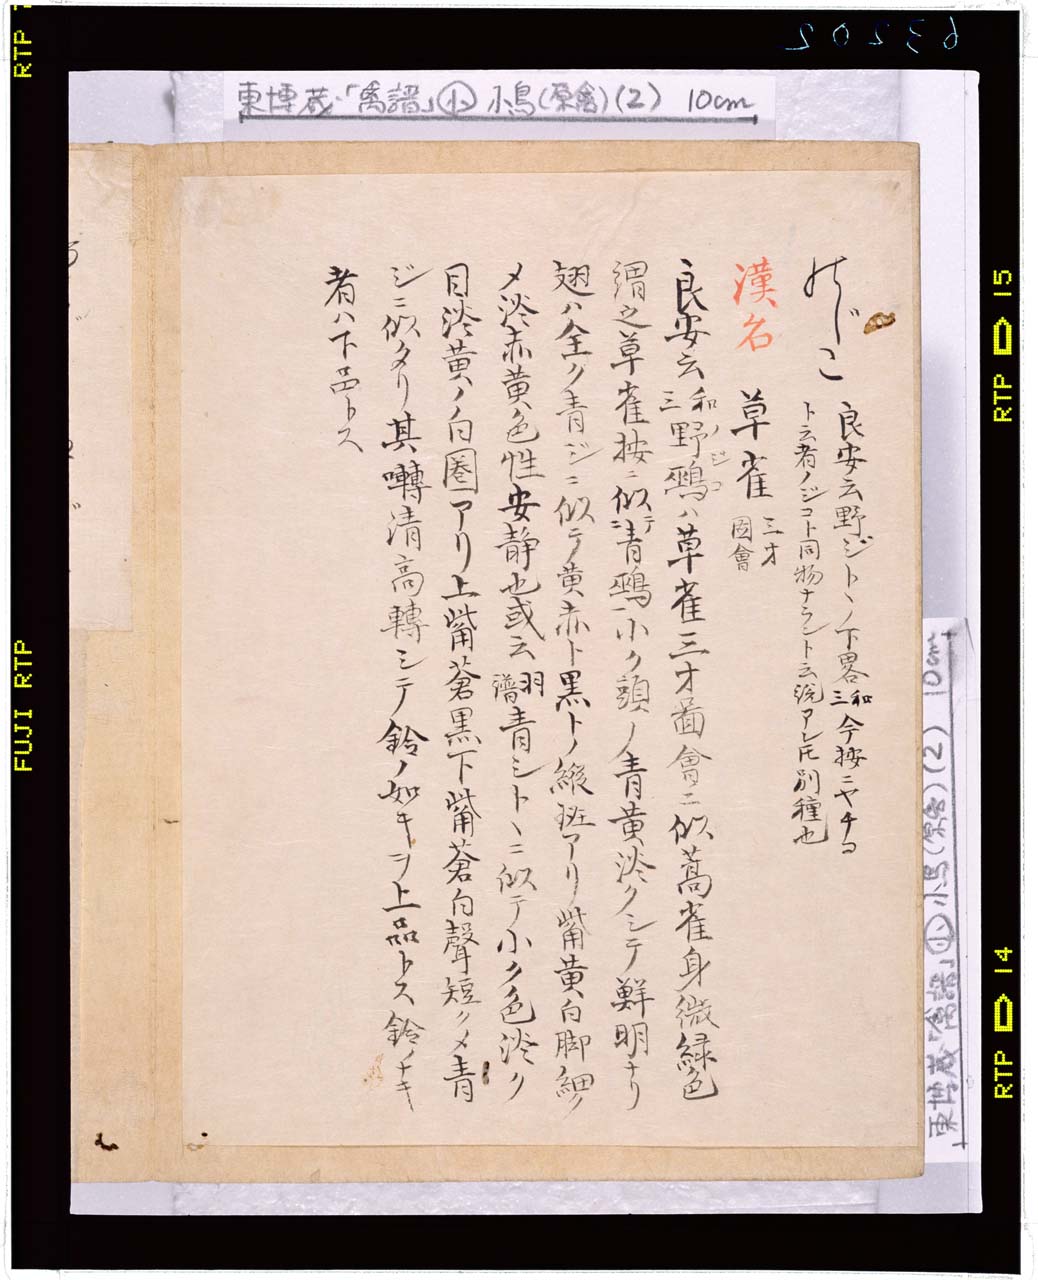 63202
東博蔵「禽譜」㊤小鳥(原禽)(2) 10cm
のじこ
良安云野ジトヽノ下畧 和三 今按ニヤチコ
ト云者ノジコト同物ナラント云説アレ𪜈別種也
漢名 草雀 三才圖會
良安云 和三 野鵐ハ草雀三才圖會ニ似蒿雀身微緑色
ノジコ
謂之草雀按ニ似テ青鵐ニ小ク頭ノ青黄淡クシテ鮮明ナリ
翅ハ全ク青ジニ似テ黄赤ト黒トノ縦斑アリ觜黄白脚細ク
メ淡赤黄色性安静也或云 羽譜 青シトヽニ似テ小ク色淡ク
目淡黄ノ白圏アリ上觜蒼黒下觜蒼白聲短クメ青
ジニ似タリ其囀清高轉シテ鈴ノ如キヲ上品トス鈴ノナキ
者ハ下品トス
東博蔵「禽譜」㊤小鳥(原禽)(2) 10cm
RTP
FUJI RTP
RTP 15
RTP 14